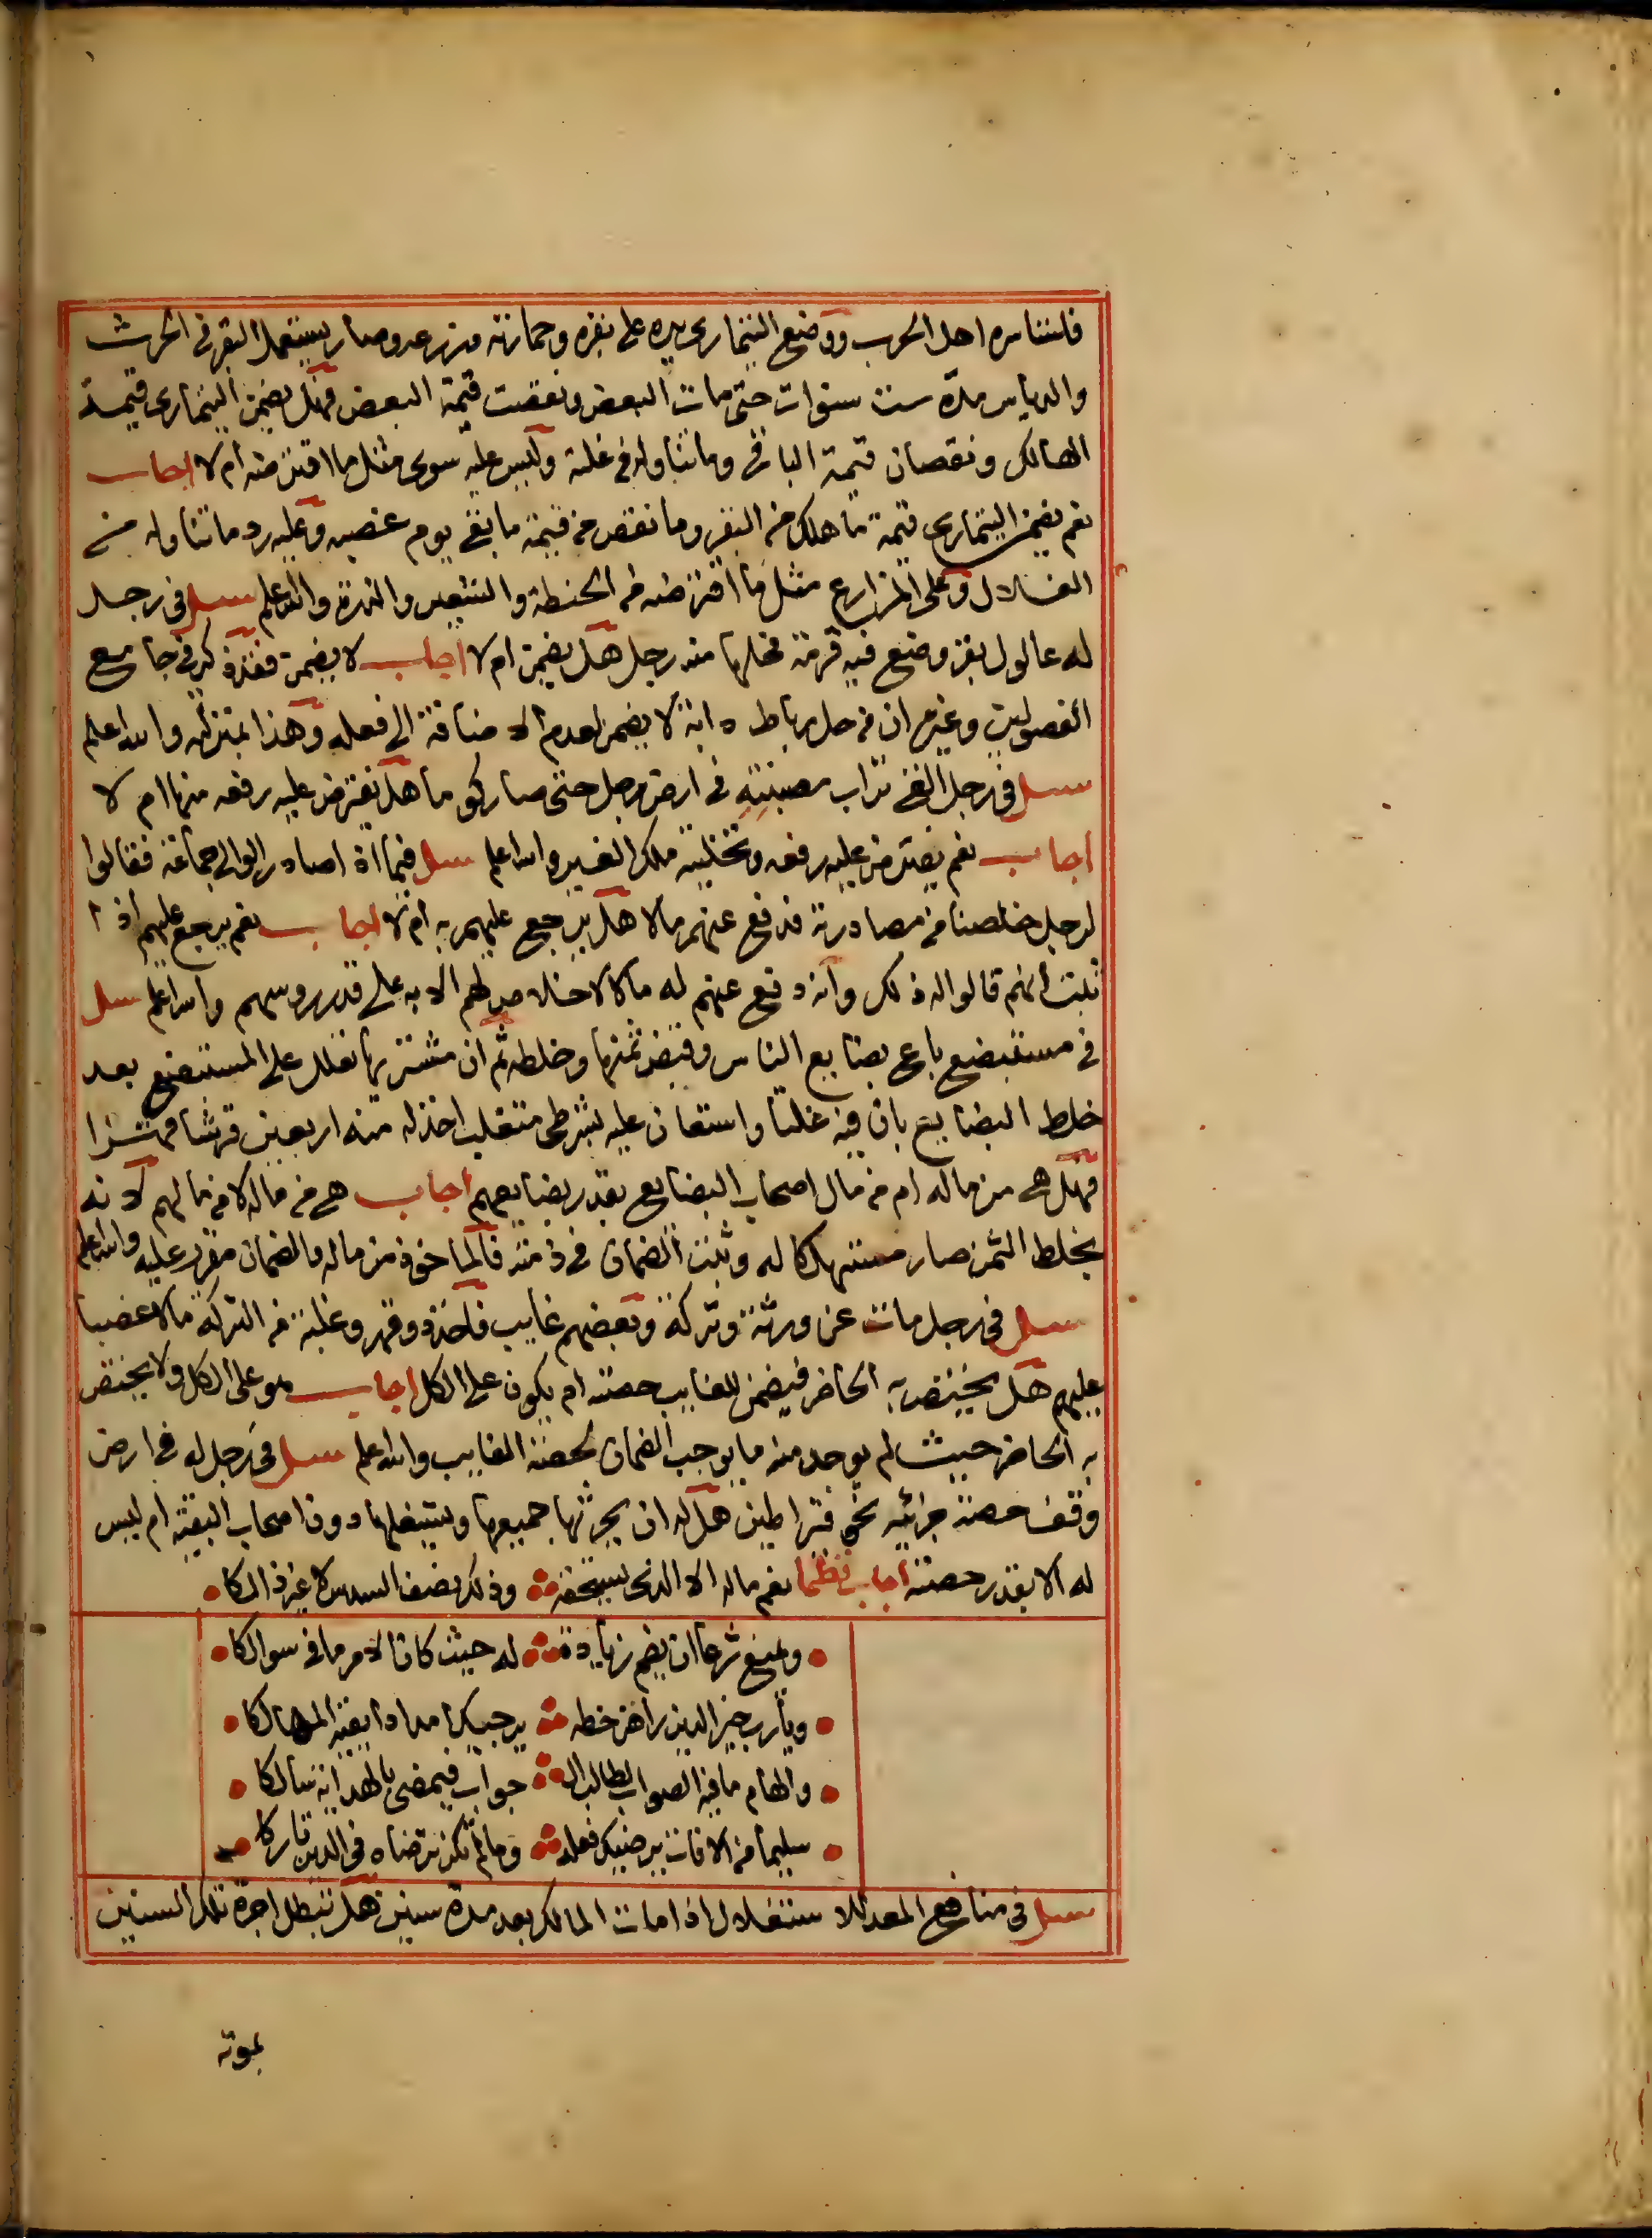 فاستاسره اهل الحرب ووضع التيمارى يده على بقره وحمارته وزرعه وصار يستعمل البقر فى الحرث
والدياس مدة ست سنوات حتى مات البعض ونقصت قيمة البعض فهل يضمن التيمارى قيمة
الهالك ونقصان قيمة الباقى وما تناوله فى غلة وليس عليه سوى مثل ما اقترضه ام لا اجاب
نعم يضمن التيمارى قيمة ما هلك من البقر وما نقص من قيمة ما بقى يوم غصبه وعليه رد ما تناوله من
الغلال وعلى المزارع مثل ما اقترضه من الحنطة والشعير والذرة والله اعلم سئل فى رجل
له عالول بقر وضع فيه قرمة فحلها منه رجل هل يضمن ام لا اجاب لا يضمن فقد ذكر فى جامع
الفصولين وغيره ان من حل رباط دابة لا يضمن لعدم الاضافة الى فعله وهذا بمنزلته والله اعلم
سئل فى رجل القى تراب مصبنته فى ارض رجل حتى صار كوما هل يفترض عليه رفعه منها ام لا
اجاب نعم يفترض عليه رفعه وتخلية ملك الغير والله اعلم سئل فيما اذا صادر الوالى جماعة فقالوا
لرجل خلصنا من مصادرته فدفع عنهم مالا هل يرجع عليهم به ام لا اجاب نعم يرجع عليهم اذا
ثبت انهم قالوا له ذلك وانه دفع عنهم له مالا لا خلاص لهم الا به على قدر روسهم والله اعلم سئل
فى مستبضع باع بضايع الناس وقبض ثمنها وخلطه ثم ان مشتريها تعلل على المستبضع بعد
خلط البضايع بان فيه غلتا واستعان عليه بشرطى متغلب اخذ له منه اربعين قرشا قهرا
فهل هى من ماله ام من مال اصحاب البضايع بقدر بضايعهم اجاب هى من ماله لا من مالهم لانه
بخلط الثمن صار مستهلكا له وثبت الضمان فى ذمته فالماخوذ من ماله والضمان مقرر عليه والله اعلم
سئل فى رجل مات عن ورثة وتركة وبعضهم غايب فاخذ ذو قهر وغلبة من التركة مالا غصبا
عليهم هل يختص به الحاضر فيضمن للغايب حصته ام يكون على الكل اجاب هو على الكل ولا يختص
به الحاضر حيث لم يوجد منه ما يوجب الضمان لحصة الغايب والله اعلم سئل فى رجل له فى ارض
وقف حصة جزئيه نحو قيراطين هل له ان يحرثها جميعها ويستغلها دون اصحاب البقية ام ليس
له الا بقدر حصته اجاب نظما نعم ماله الا الذى يستحقه وذلك نصف السدس لا غير ذالكا
ويمنع شرعا ان يضم زيادة له حيث كان الامر ما فى سوالكا
ويارب خير الدين راقم خطه يرجيك امدادا يقيه المهالكا
والهام ما فيه الصواب لطالب الـ جواب فيمضى بالهداية سالكا
سليما من الافات يرضيك فعله وما لم تكن ترضاه فى الدين تاركا
سئل فى منافع المعد للاستغلال اذا مات المالك بعد مدة سنين هل تبطل اجرة تلك السنين
بموته